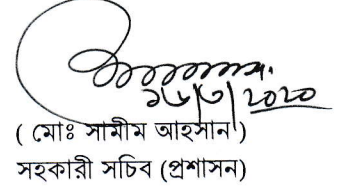 ১৬/৩/২০২০
( মোঃ সামীম আহসান )
সহকারী সচিব (প্রশাসন)